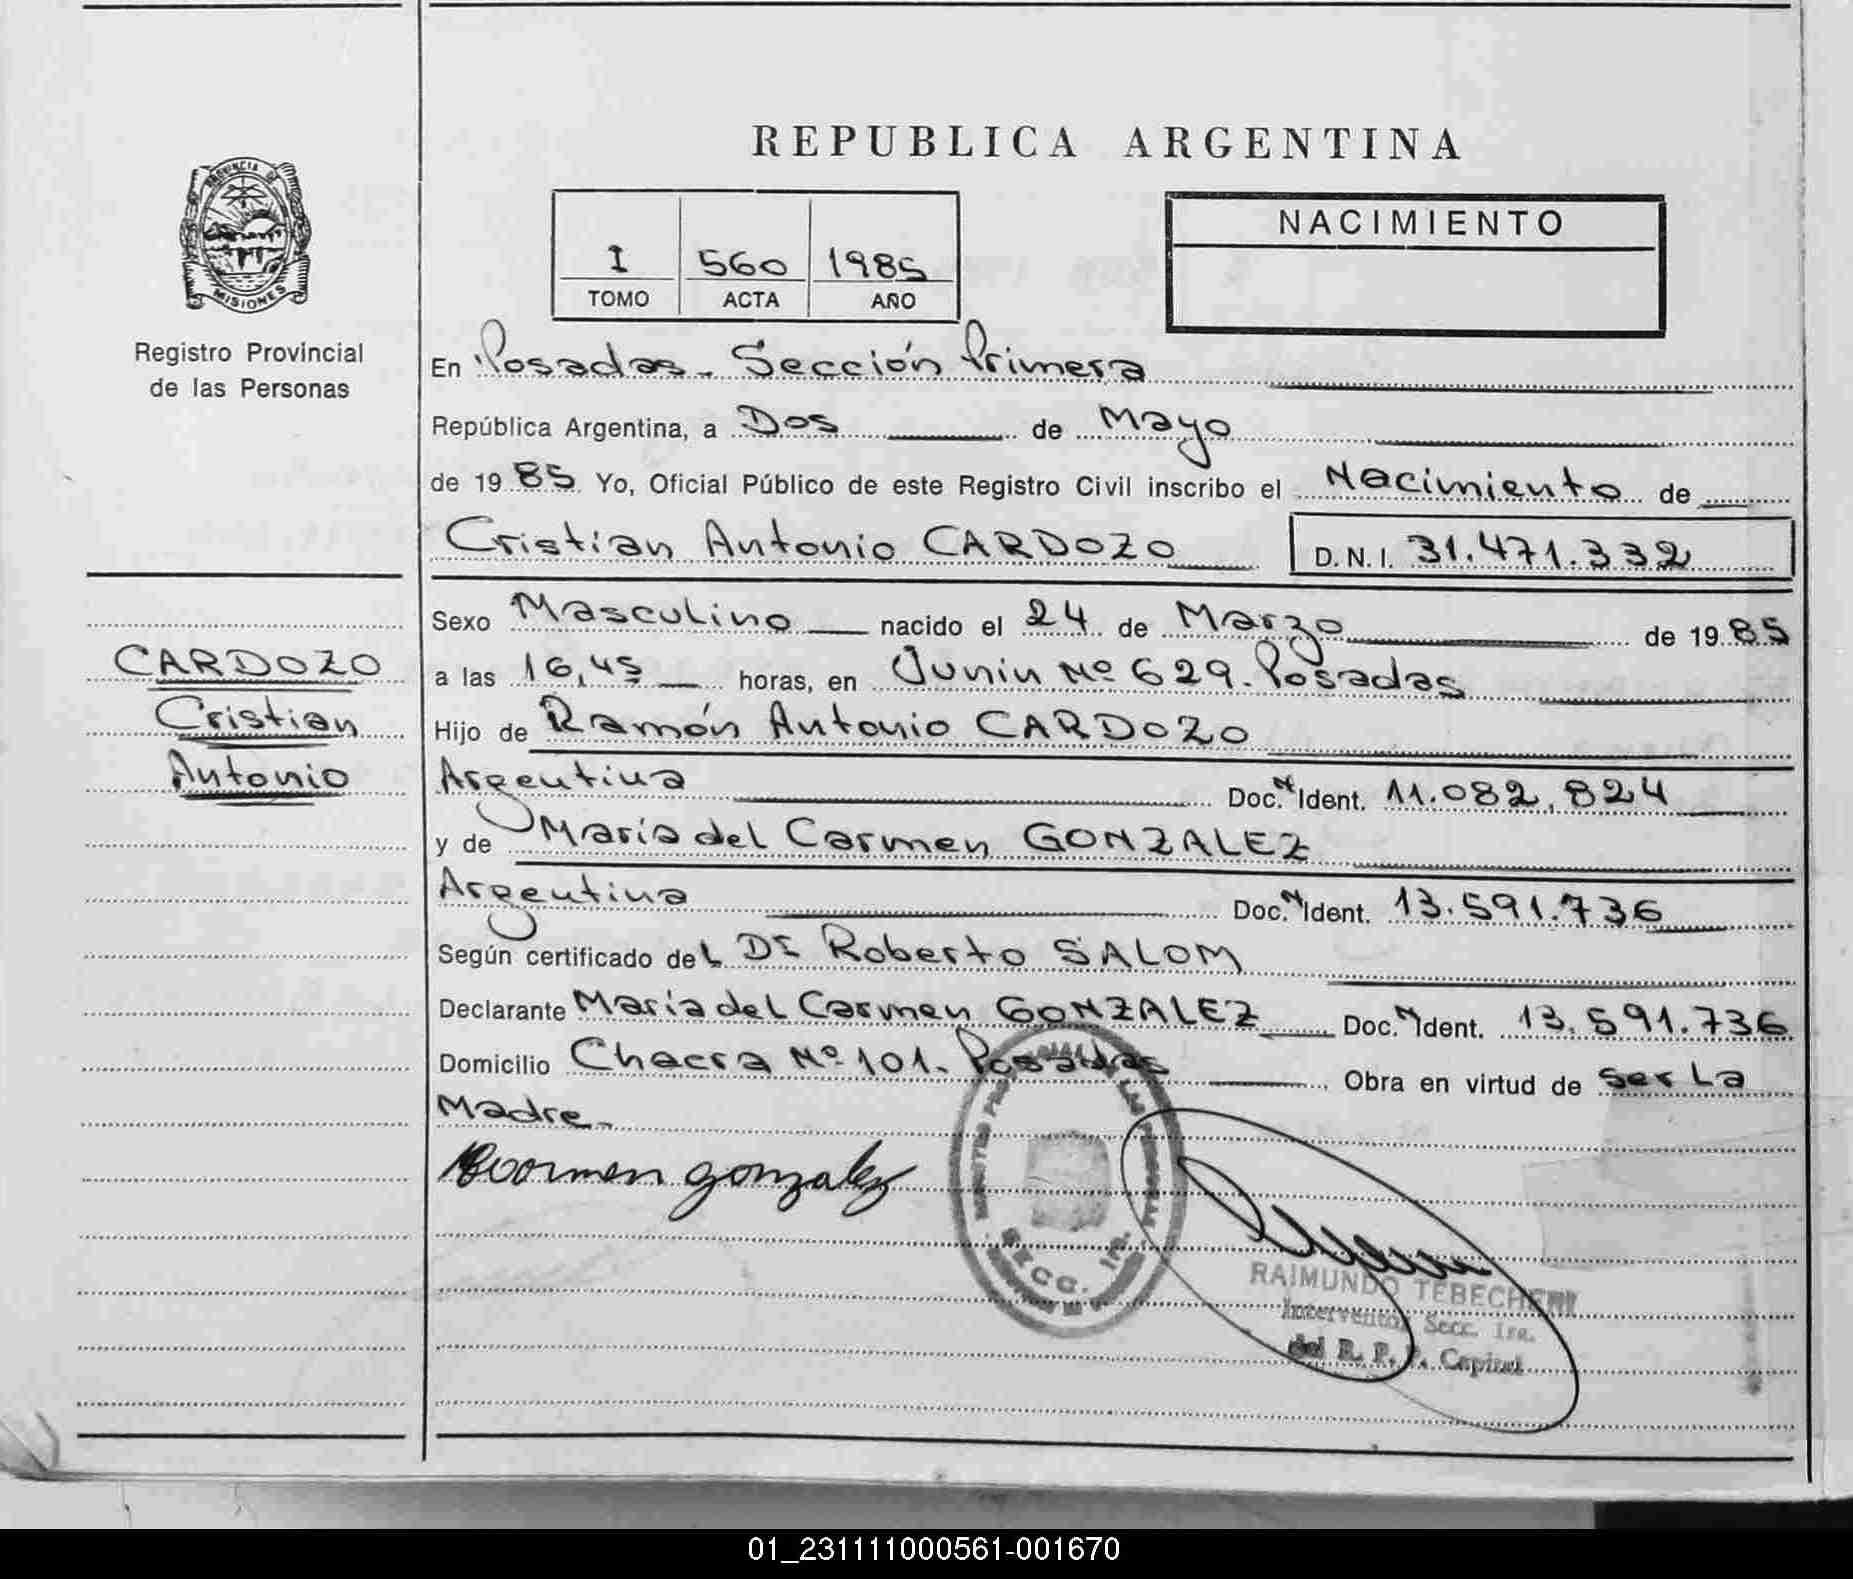 REPUBLICA ARGENTINA
PROVINCIA DE
MISIONES
Registro Provincial
de las Personas
I 560 1985
TOMO ACTA AÑO
NACIMIENTO
En Posadas. Sección Primera
República Argentina, a Dos de Mayo
de 1985 Yo, Oficial Público de este Registro Civil inscribo el Nacimiento de
Cristian Antonio CARDOZO D.N.I. 31.471.332
CARDOZO
Cristian
Antonio
Sexo Masculino nacido el 24 de Marzo de 1985
a las 16,45 horas, en Junin Nº 629. Posadas
Hijo de Ramón Antonio CARDOZO
Argentina Doc. N Ident. 11.082.824
y de María del Carmen GONZALEZ
Argentina Doc. N Ident. 13.591.736
Según certificado del Dr Roberto SALOM
Declarante María del Carmen GONZALEZ Doc. N Ident. 13.591.736
Domicilio Chacra Nº 101. Posadas Obra en virtud de ser La
Madre.
gonzalez
SECC. 1ra.
RAIMUNDO
Interventor Secc. 1ra.
del R. P. P. Capital
01_231111000561-001670